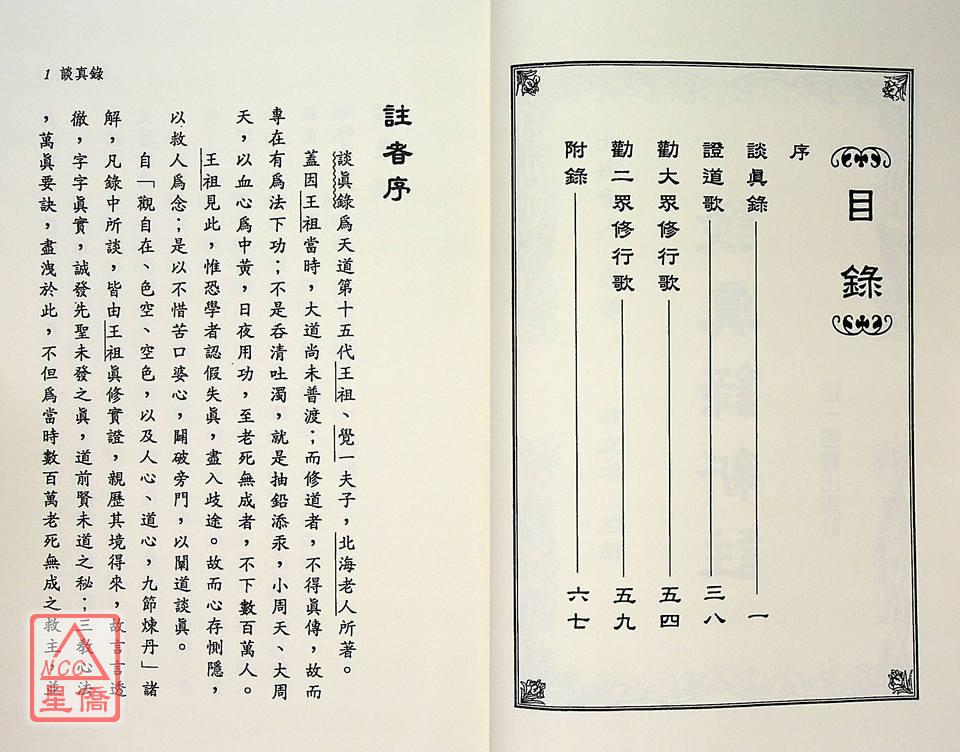 目錄
序
談眞錄 一
證道歌 三八
勸大眾修行歌 五四
勸二眾修行歌 五九
附錄 六七
1 談真錄
註者序
談眞錄爲天道第十五代王祖、覺一夫子，北海老人所著。
蓋因王祖當時，大道尚未普渡；而修道者，不得眞傳，故而
專在有爲法下功；不是吞清吐濁，就是抽鉛添汞，小周天、大周
天，以血心爲中黃，日夜用功，至老死無成者，不下數百萬人。
王祖見此，惟恐學者認假失眞，盡入歧途。故而心存惻隱，
以救人爲念；是以不惜苦口婆心，闢破旁門，以闡道談眞。
自「觀自在、色空、空色，以及人心、道心，九節煉丹」諸
解，凡錄中所談，皆由王祖眞修實證，親歷其境得來，故言言透
徹，字字眞實，誠發先聖未發之眞，道前賢未道之秘；三教心法
，萬眞要訣，盡洩於此，不但爲當時數百萬老死無成之救主，並
NCC
星僑